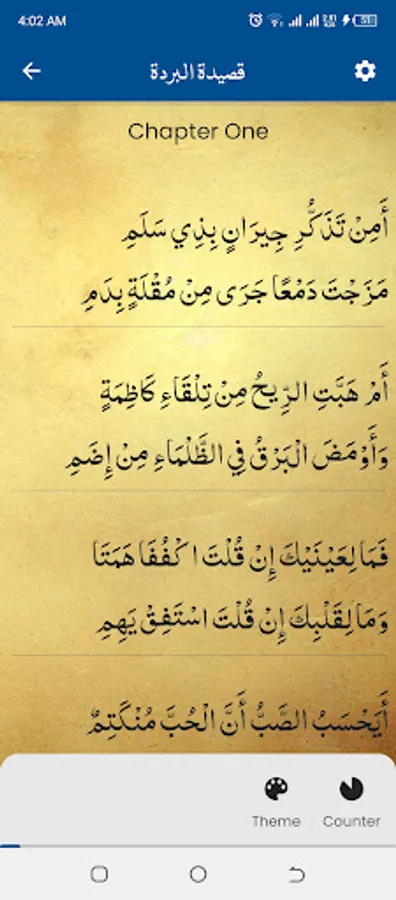 4:02 AM
51
قصيدة البردة
Chapter One
أَمِنْ تَذَكُّرِ جِيرَانٍ بِذِي سَلَمِ
مَزَجْتَ دَمْعًا جَرَى مِنْ مُقْلَةٍ بِدَمِ
أَمْ هَبَّتِ الرِّيحُ مِنْ تِلْقَاءِ كَاظِمَةٍ
وَأَوْمَضَ الْبَرْقُ فِي الظَّلْمَاءِ مِنْ إِضَمِ
فَمَا لِعَيْنَيْكَ إِنْ قُلْتَ اكْفُفَا هَمَتَا
وَمَا لِقَلْبِكَ إِنْ قُلْتَ اسْتَفِقْ يَهِمِ
أَيَحْسَبُ الصَّبُّ أَنَّ الْحُبَّ مُنْكَتِمٌ
Theme
Counter